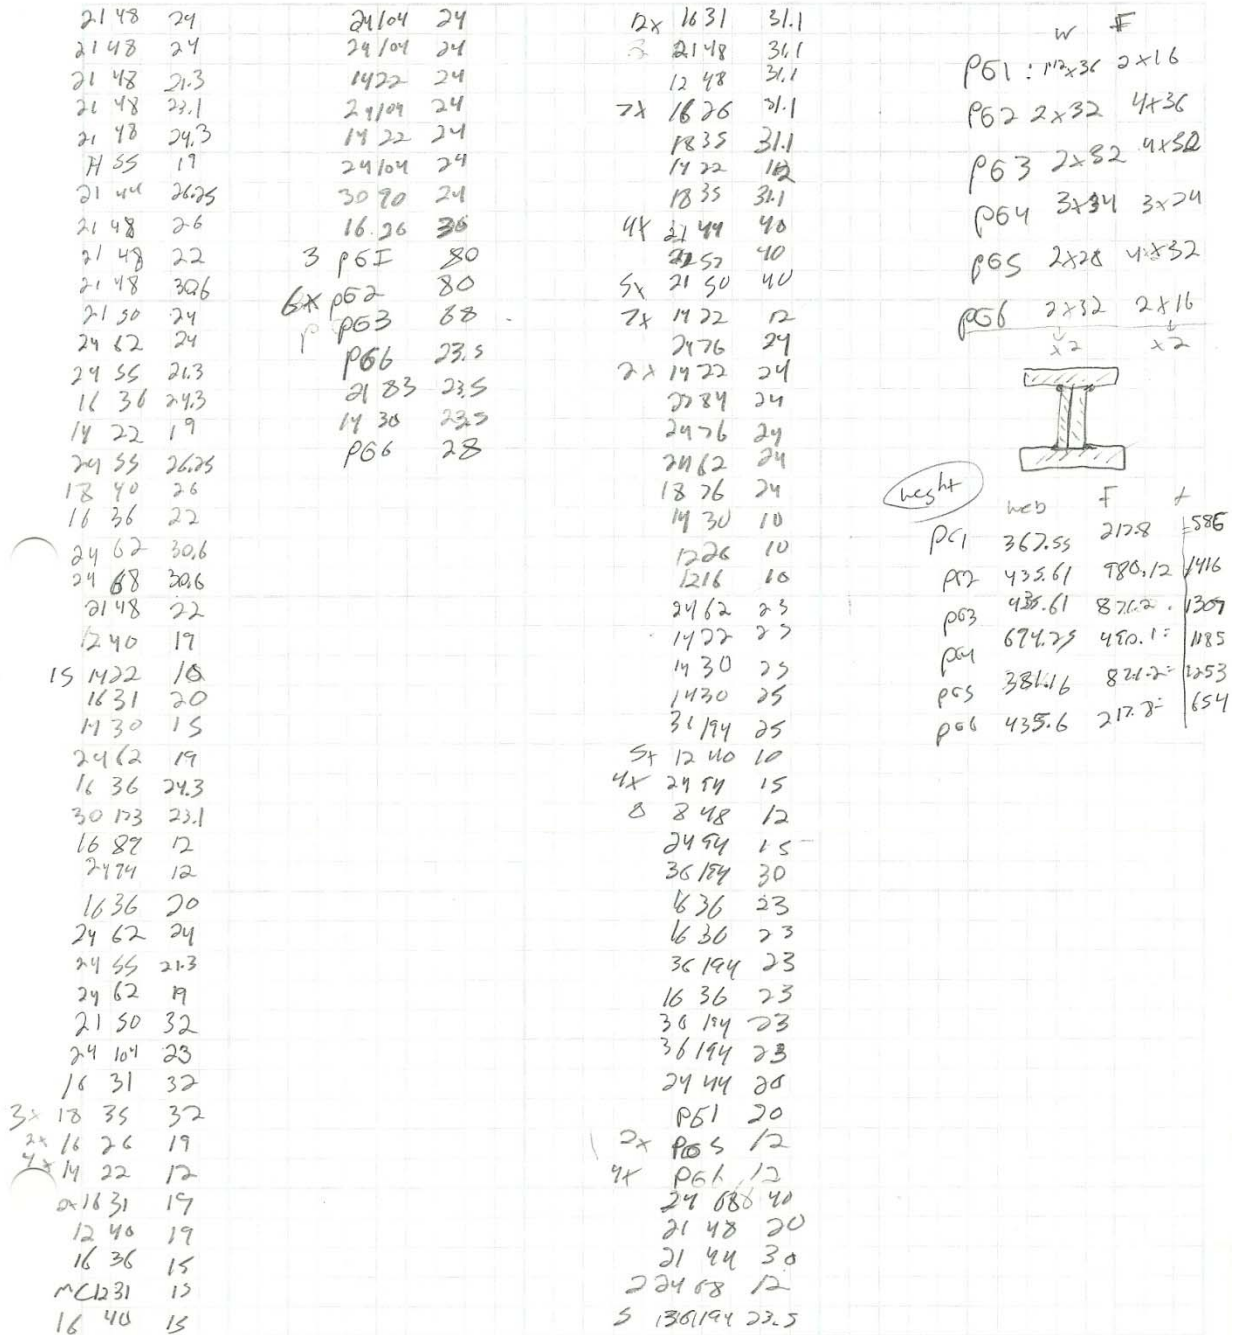 21 48 24
21 48 24
21 48 21.3
21 48 23.1
21 48 24.3
55 19
21 44 26.25
21 48 26
21 48 22
21 48 30.6
21 50 24
24 62 24
24 55 21.3
16 36 24.3
14 22 19
24 55 26.25
18 40 26
16 36 22
24 62 30.6
24 68 30.6
21 48 22
12 40 19
15 14 22 10
16 31 20
14 30 15
24 62 19
16 36 24.3
30 173 23.1
16 89 12
24 94 12
16 36 20
24 62 24
24 55 21.3
24 62 19
21 50 32
24 104 23
16 31 32
3x 18 35 32
2x 16 26 19
4x 14 22 12
2x 16 31 19
12 40 19
16 36 15
MC12 31 15
16 40 15
24/04 24
24/04 24
14 22 24
24/04 24
14 22 24
24/04 24
30 90 24
16 26 30
3 PG1 80
6x PG2 80
PG3 68
PG6 23.5
21 83 23.5
14 30 23.5
PG6 28
12x 16 31 31.1
3 21 48 31.1
12 48 31.1
7x 16 26 31.1
18 35 31.1
14 22 12
18 35 31.1
4x 21 44 40
57 40
5x 21 50 40
7x 14 22 12
24 76 24
2x 14 22 24
84 24
24 76 24
24 62 24
18 76 24
14 30 10
12 26 10
12 16 10
24 62 23
14 22 23
14 30 25
14 30 25
36 194 25
5x 12 40 10
4x 24 94 15
8 8 48 12
24 94 15
36 194 30
16 36 23
16 36 23
36 194 23
16 36 23
36 194 23
36 194 23
24 44 20
PG1 20
2x PG5 12
4x PG6 12
24 68 40
21 48 20
21 44 30
2 24 68 12
5 36 194 23.5
W F
PG1 : 1 1/2x36 2x16
PG2 2x32 4x36
PG3 2x32 4x32
PG4 3x34 3x24
PG5 2x28 4x32
PG6 2x32 2x16
x2 x2
weight
web F t
PG1 367.55 217.8 =585
PG2 435.61 980.12 1416
PG3 435.61 871.2 1307
PG4 694.25 490.1= 1185
PG5 381.16 871.2= 1253
PG6 435.6 217.8= 654